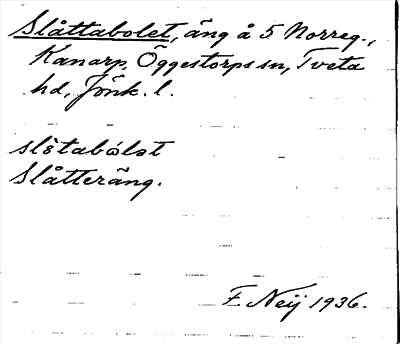 Slåttabolet, äng å 5 Norreg.,
Kanarp, Öggestorps sn, Tveta
hd, Jönk. l.
slètabólet
Slåtteräng.
F. Neij 1936.